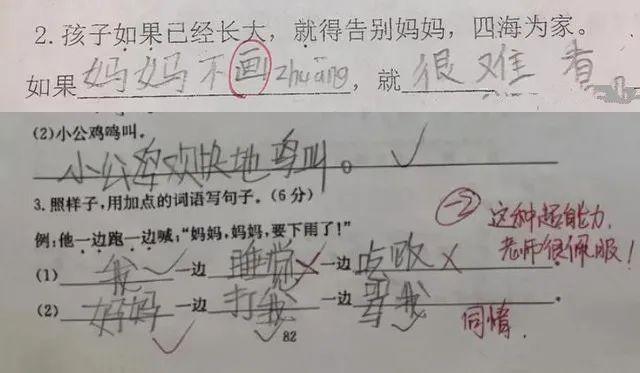 2.孩子如果已经长大，就得告别妈妈，四海为家。
如果妈妈不画zhuāng，就很难看
(2)小公鸡鸣叫。
小公鸡欢快地鸣叫。
3.照样子,用加点的词语写句子。(6分)
例:他一边跑一边喊:“妈妈,妈妈,要下雨了!”
(1)我一边睡觉一边
(2)妈妈一边打我一边骂我.
-2 这种超能力,
老师很佩服!
同情.
82